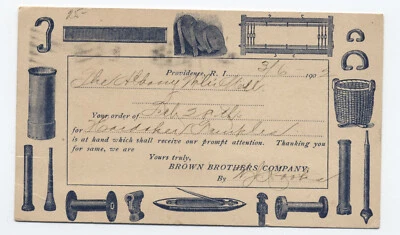 Providence, R. I. 3/6 190
The Albany
Your order of Feb 20th
for
is at hand which shall receive our prompt attention. Thanking you
for same, we are
Yours truly,
BROWN BROTHERS COMPANY,
By